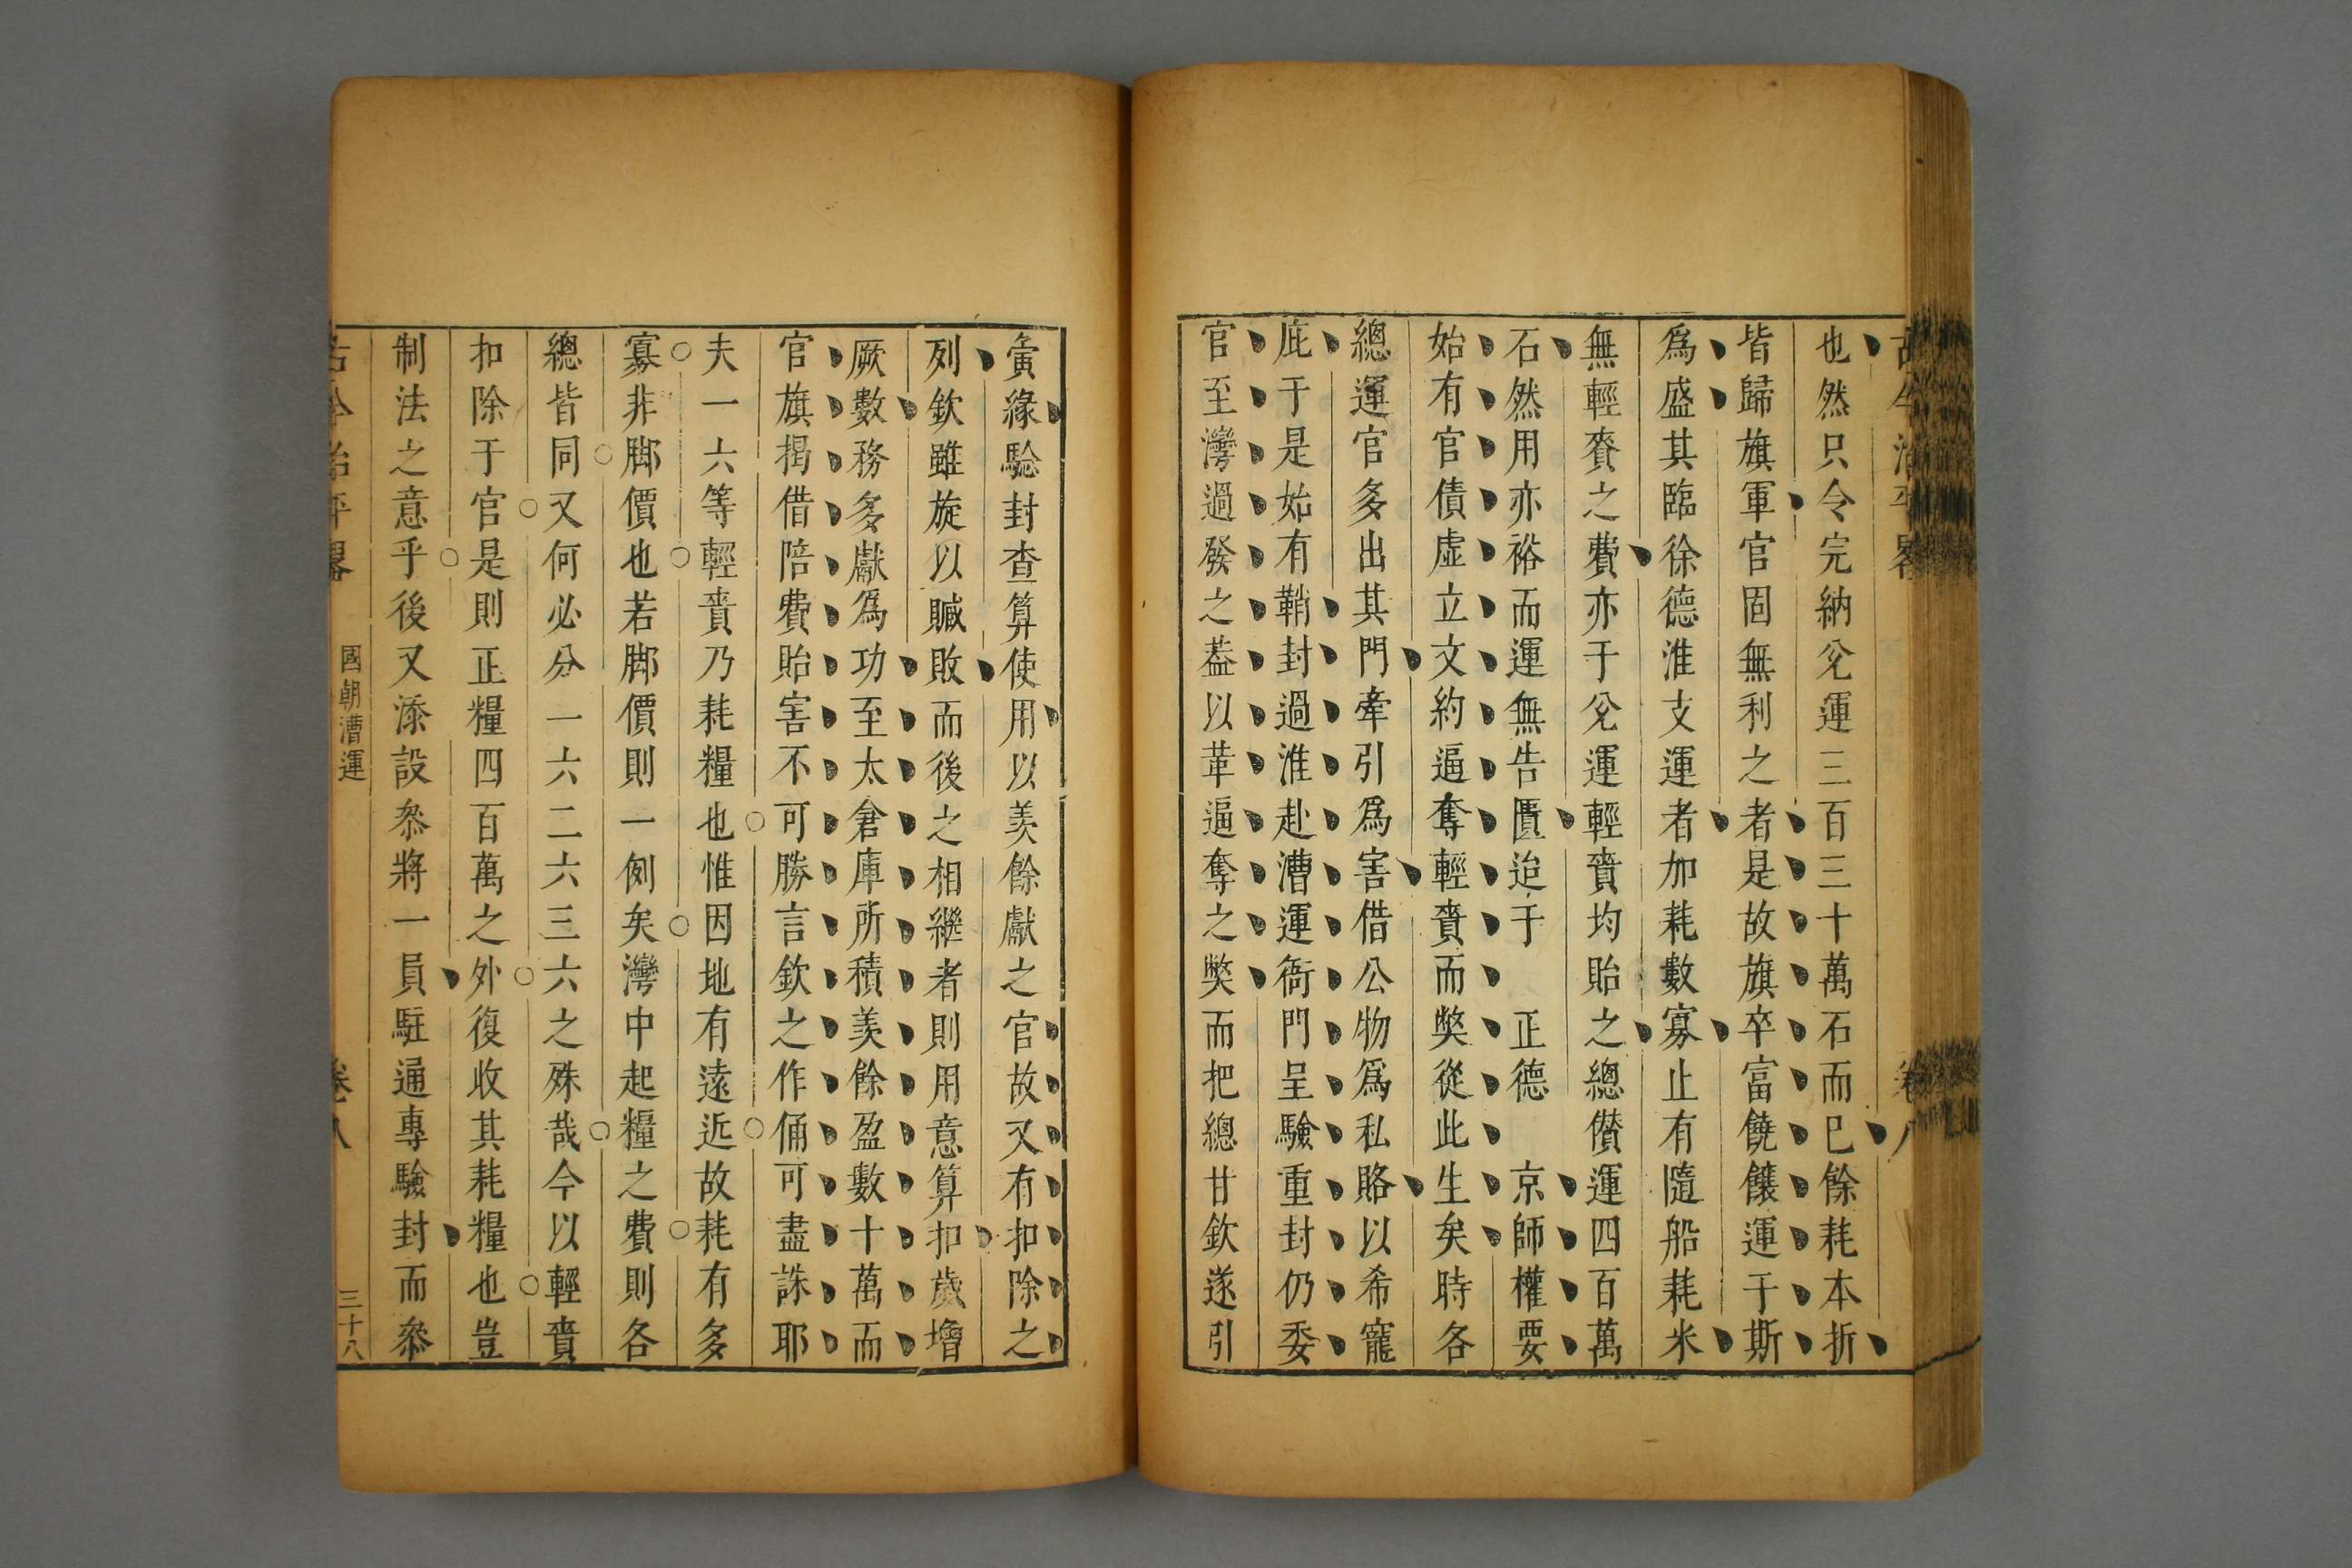 古今治平畧
卷八
也然只令完納兊運三百三十萬石而已餘耗本折
皆歸旗軍官固無利之者是故旗卒富饒饟運于斯
爲盛其臨徐德淮支運者加耗數寡止有隨船耗米
無輕賫之費亦于兊運輕賫均貽之總儧運四百萬
石然用亦裕而運無告匱迨于 正德 京師權要
始有官債虛立文約逼奪輕賫而弊從此生矣時各
總運官多出其門牽引爲害借公物爲私賂以希寵
庇于是始有鞘封過淮赴漕運衙門呈驗重封仍委
官至灣過發之葢以革逼奪之弊而把總甘欽遂引
夤緣驗封查算使用以羨餘獻之官故又有扣除之
列欽雖旋以贓敗而後之相繼者則用意算扣歲增
厥數務多獻爲功至太倉庫所積羨餘盈數十萬而
官旗揭借陪費貽害不可勝言欽之作俑可盡誅耶
夫一六等輕賫乃耗糧也惟因地有遠近故耗有多
寡非脚價也若脚價則一例矣灣中起糧之費則各
總皆同又何必分一六二六三六之殊哉今以輕賫
扣除于官是則正糧四百萬之外復收其耗糧也豈
制法之意乎後又添設叅將一員駐通專驗封而叅
古今治平畧
國朝漕運
卷八
三十八